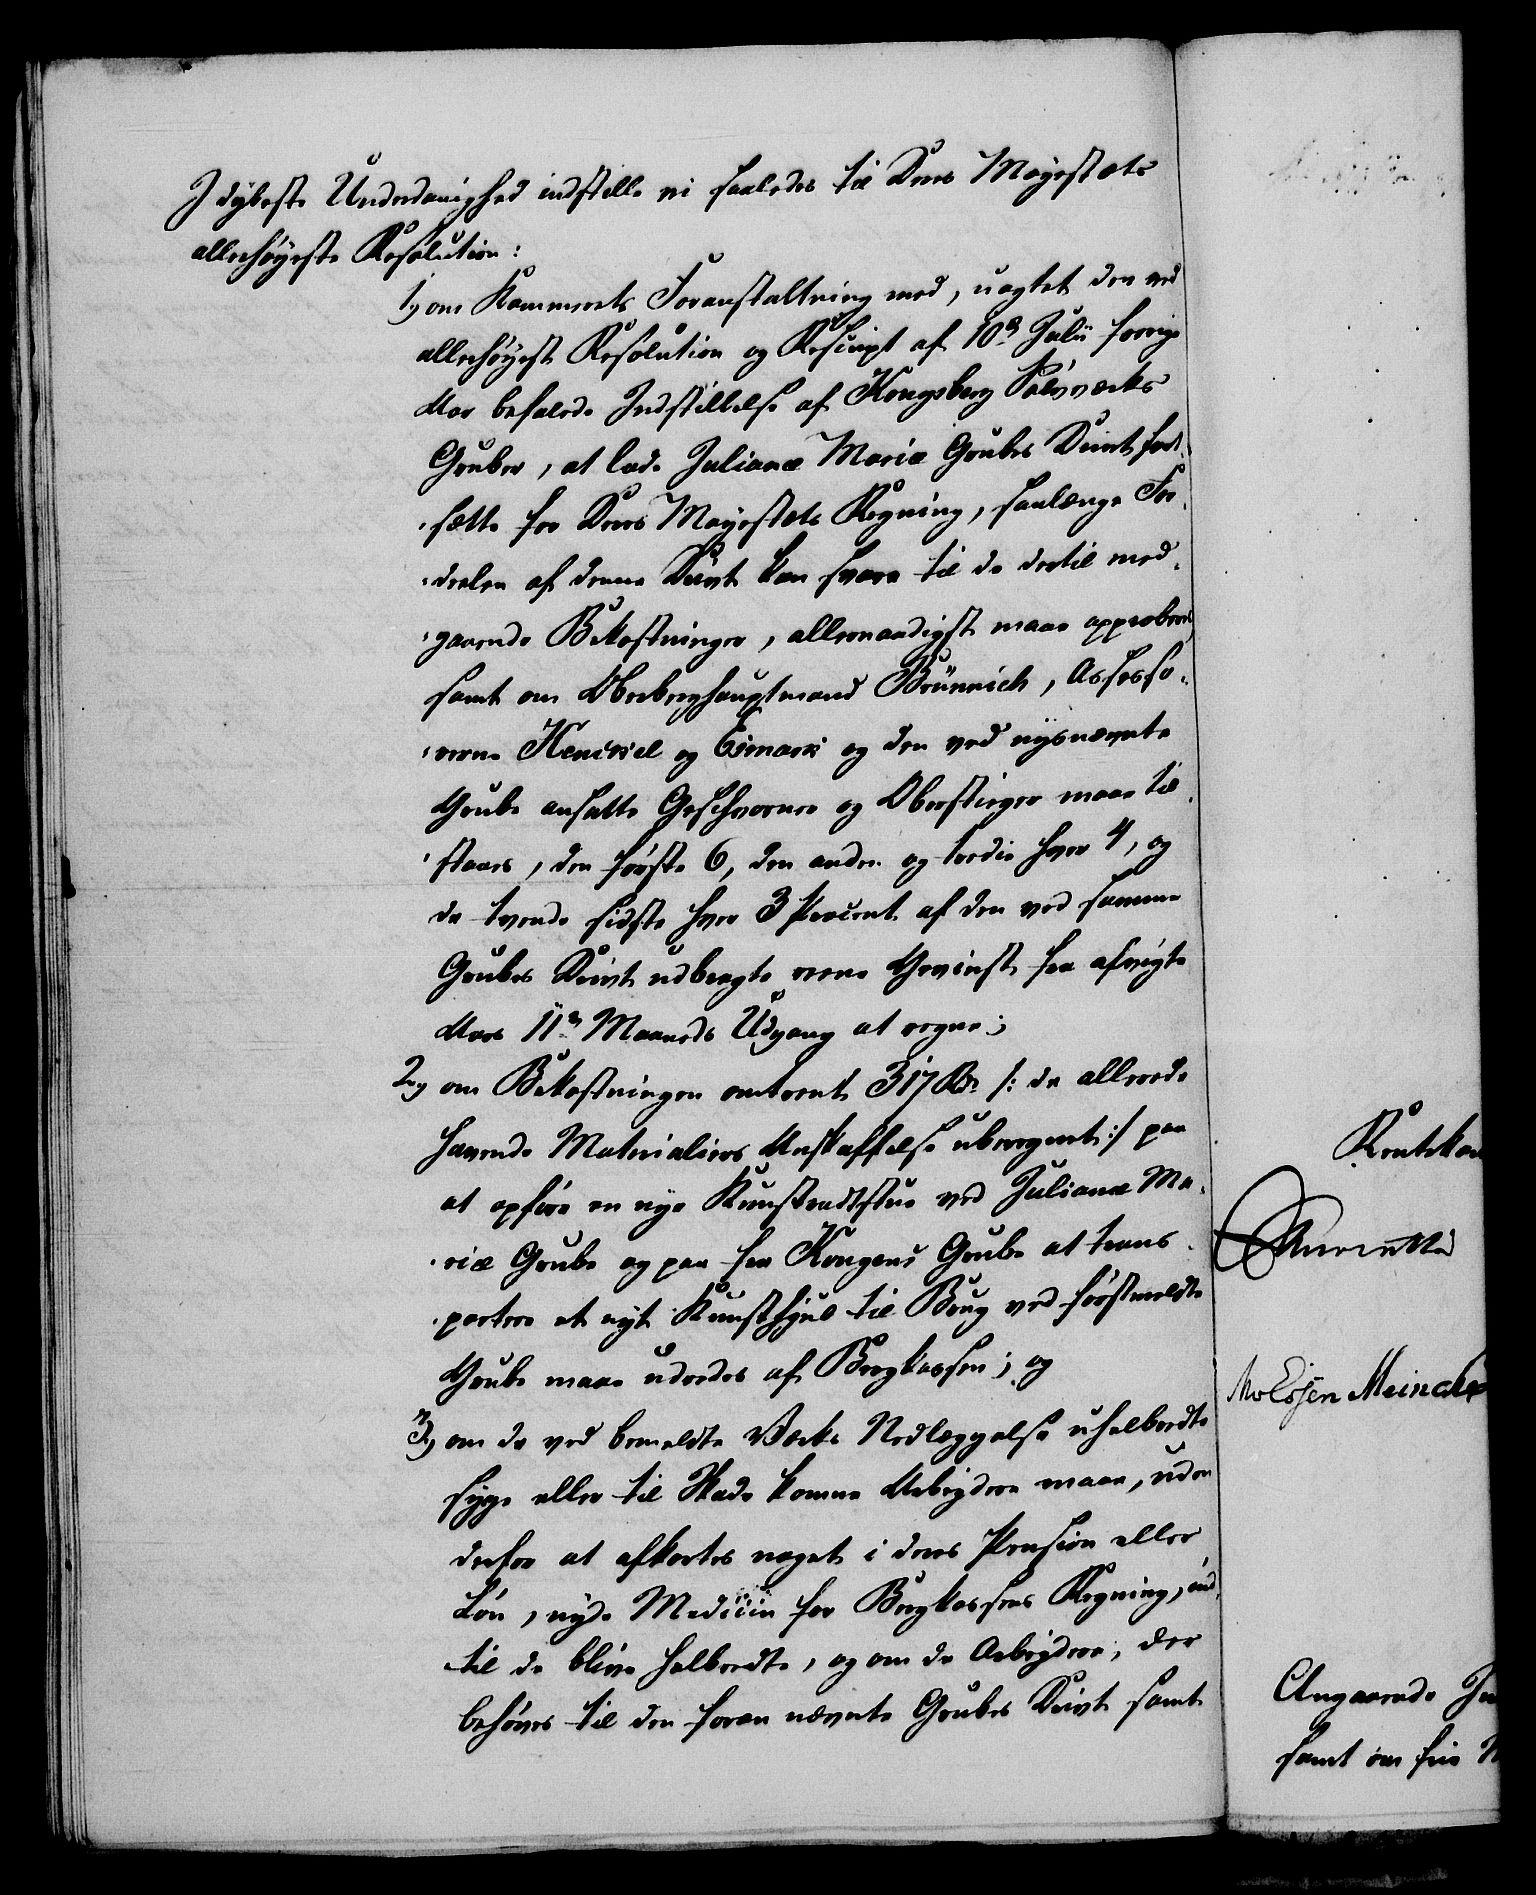 I dybeste Underdanighed indstille vi saaledes til Deres Mayestæts
allerhöyeste Resolution:
1.) om Kammerets Foranstaltning med, uagtet den ved
allerhöyest Resolution og Rescript af 10de Julii forrige
Aar befalede Indstillelse af Kongsberg Sölvværks
Gruber, at lade Juliane Mariæ Grubes Drivt fort-
-sætte for Deres Mayestæts Regning, saalænge For-
-delen af denne Drivt kan svare til de dertil med-
-gaaende Bekostninger, allernaadigst maae approberes,
samt om Oberberghauptmand Brünnich, Assesso-
-rerne Henckel og Esmark og den ved nysnævnte
Grube ansatte Geschworner og Oberstieger maae til-
-staaes, den förste 6, den anden og tredie hver 4, og
de tvende sidste hver 3 Procent af den ved samme
Grubes Drivt udbragte reene Gevinst fra afvigte
Aars 11te Maaneds Udgang at regne;
2.) om Bekostningen omtrent 317 Rdr /: de allerede
havende Materialiers Anskaffelse uberegnet :/ paa
at opföre en nye Kunstradstue ved Juliane Ma-
-riæ Grube og paa fra Kongens Grube at trans-
-portere et nyt Kunsthjul til Brug ved förstmeldte
Grube maae udredes af Bergkassen; og
3.) om de ved bemeldte Værks Nedlæggelse uhelbredte
syge eller til Skade komne Arbeydere maae, uden
derfor at afkortes noget i deres Pension eller
Lön, nyde Medicin for Bergkassens Regning, ind-
-til de blive helbredte, og om de Arbeydere, der
behöves til den foran nævnte Grubes Drivt samt
Rentekam
Meinche
Angaaende Ju
samt om frie